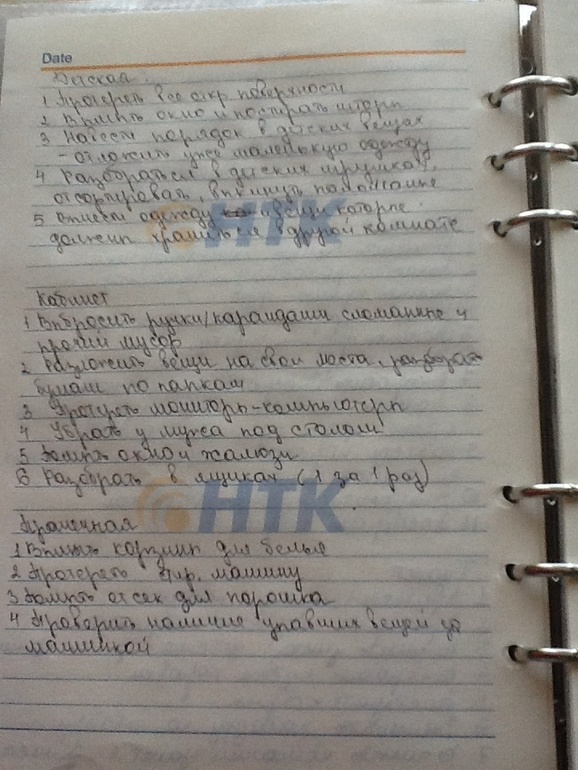 Date
Детская:
1 Протереть все откр. поверхности
2 Вымыть окно и постирать шторы
3 Навести порядок в детских вещах
- отложить уже маленькую одежду
4 Разобраться в детских игрушках,
отсортировать, выкинуть поломанные
5 Отнести одежду и вещи которые
должны храниться в другой комнате
НТК
Кабинет
1 Выбросить ручки/карандаши сломанные и
прочий мусор
2 Разложить вещи на свои места, разобрать
бумаги по папкам
3 Протереть мониторы-компьютеры
4 Убрать у мужа под столом
5 Помыть окно и жалюзи
6 Разобрать в ящиках (1 за 1 раз)
НТК
Прачечная
1 Вымыть корзины для белья
2 Протереть стир. машину
3 Помыть отсек для порошка
4 Проверить наличие упавших вещей за
машинкой